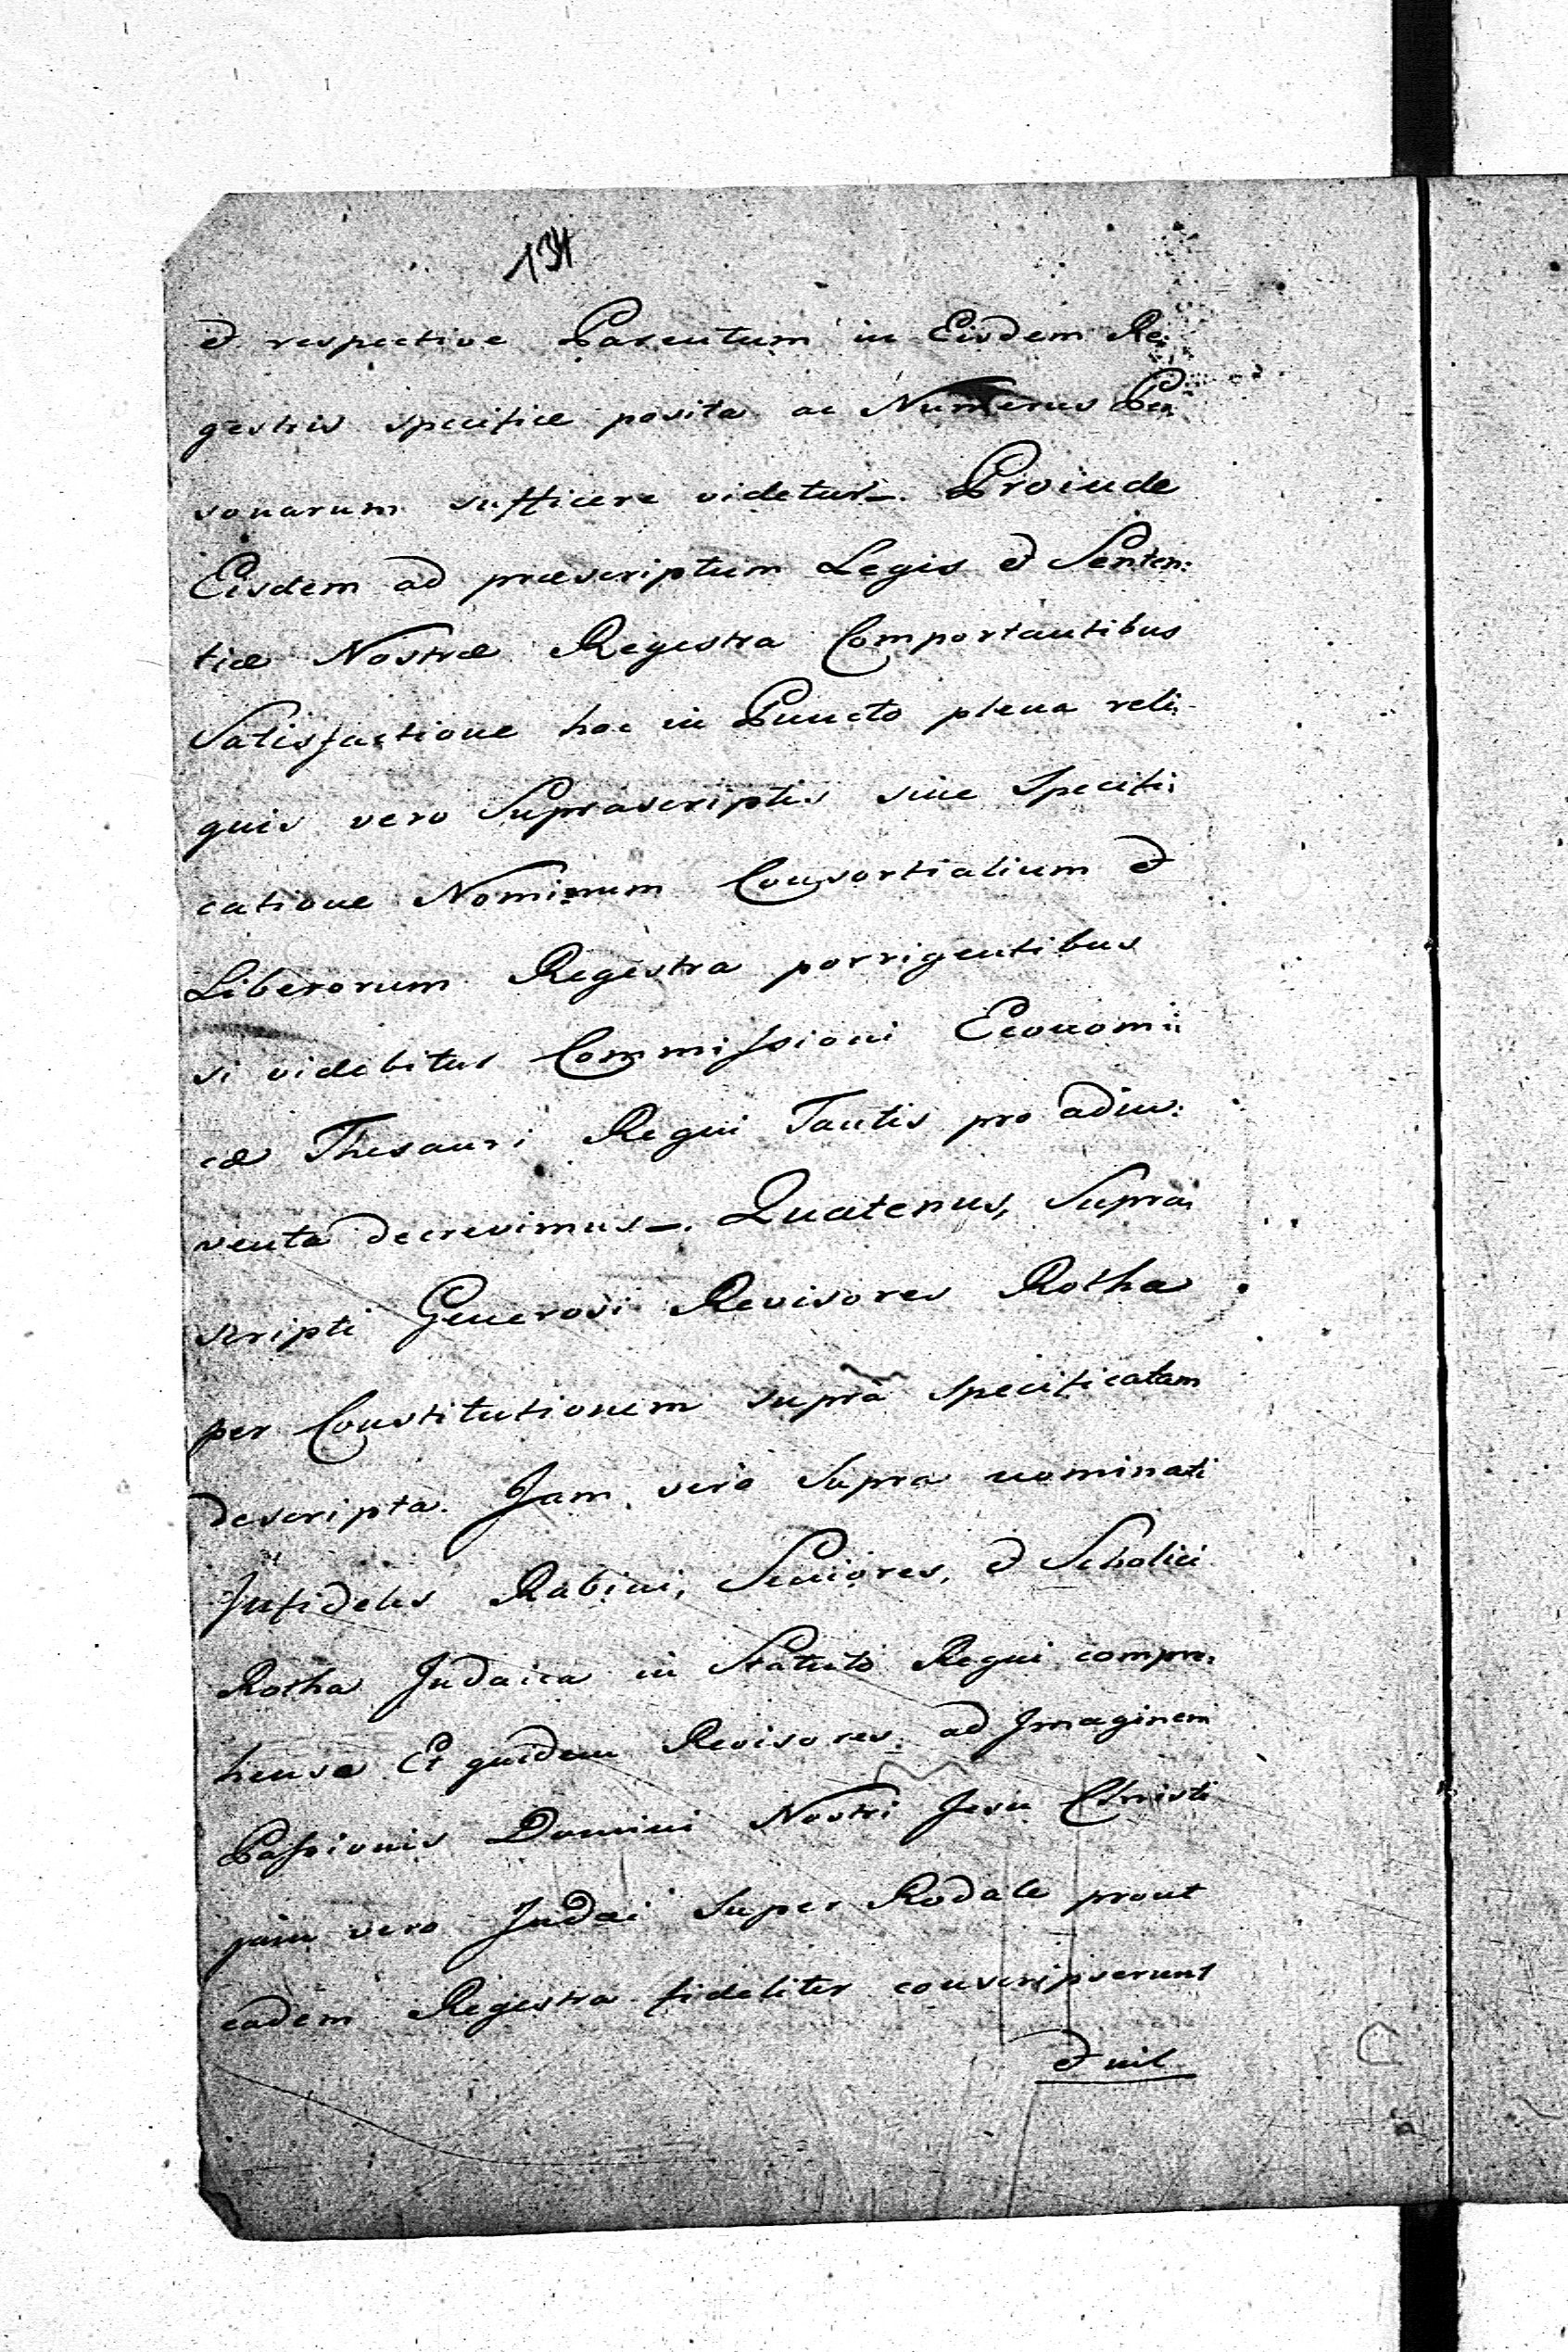 134
et respective Parentum in Eisdem Re:
gestris specificè posita ac Numerus Per:
sonarum sufficere videtur. Proinde
Eisdem ad præscriptum Legis et Senten:
tiæ Nostræ Regestra Comportantibus
Satisfactione hoc in Puncto plena reli:
quis vero Suprascriptis sine Specifi:
catione Nominum Consortialium et
Liberorum Regestra porrigentibus
si videbitur Commissioni Economi:
cæ Thesauri Regni Tantis pro adin:
venta decrevimus. Quatenus, Supra:
scripti Generosi Revisores Rotha
per Constitutionem suprà specificatam
descripta. Jam vero Supra nominati
Infideles Rabini, Seniores, et Scholici
Rotha Judaica in Statuto Regni compre:
hensa Et quidem Revisores ad Imaginem
Passionis Domini Nostri Jesu Christi
jam vero Judæi Super Rodale prout
eadem Regestra fideliter conscripserunt
et nil